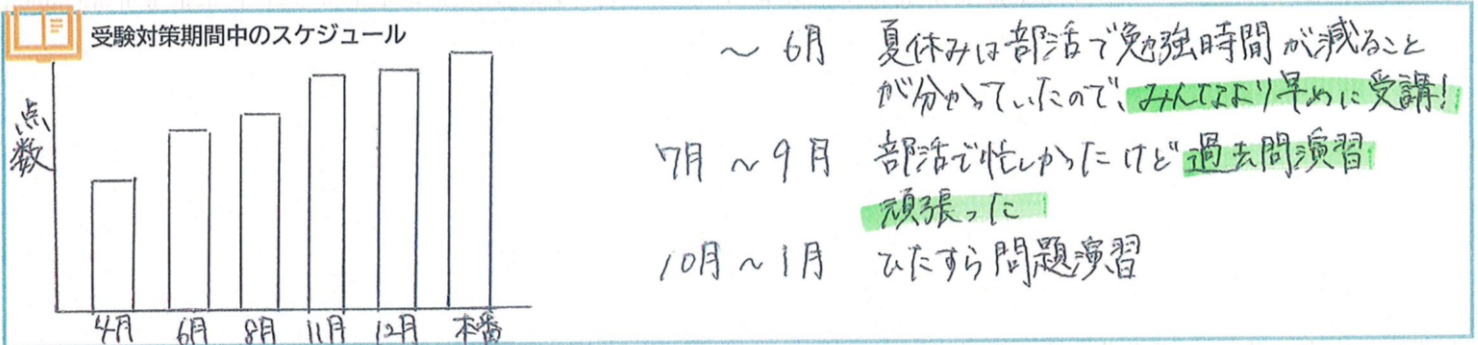 受験対策期間中のスケジュール
点数
4月 6月 8月 11月 12月 本番
～6月 夏休みは部活で勉強時間が減ること
が分かっていたので、みんなより早めに受講!
7月～9月 部活で忙しかったけど過去問演習
頑張った
10月～1月 ひたすら問題演習